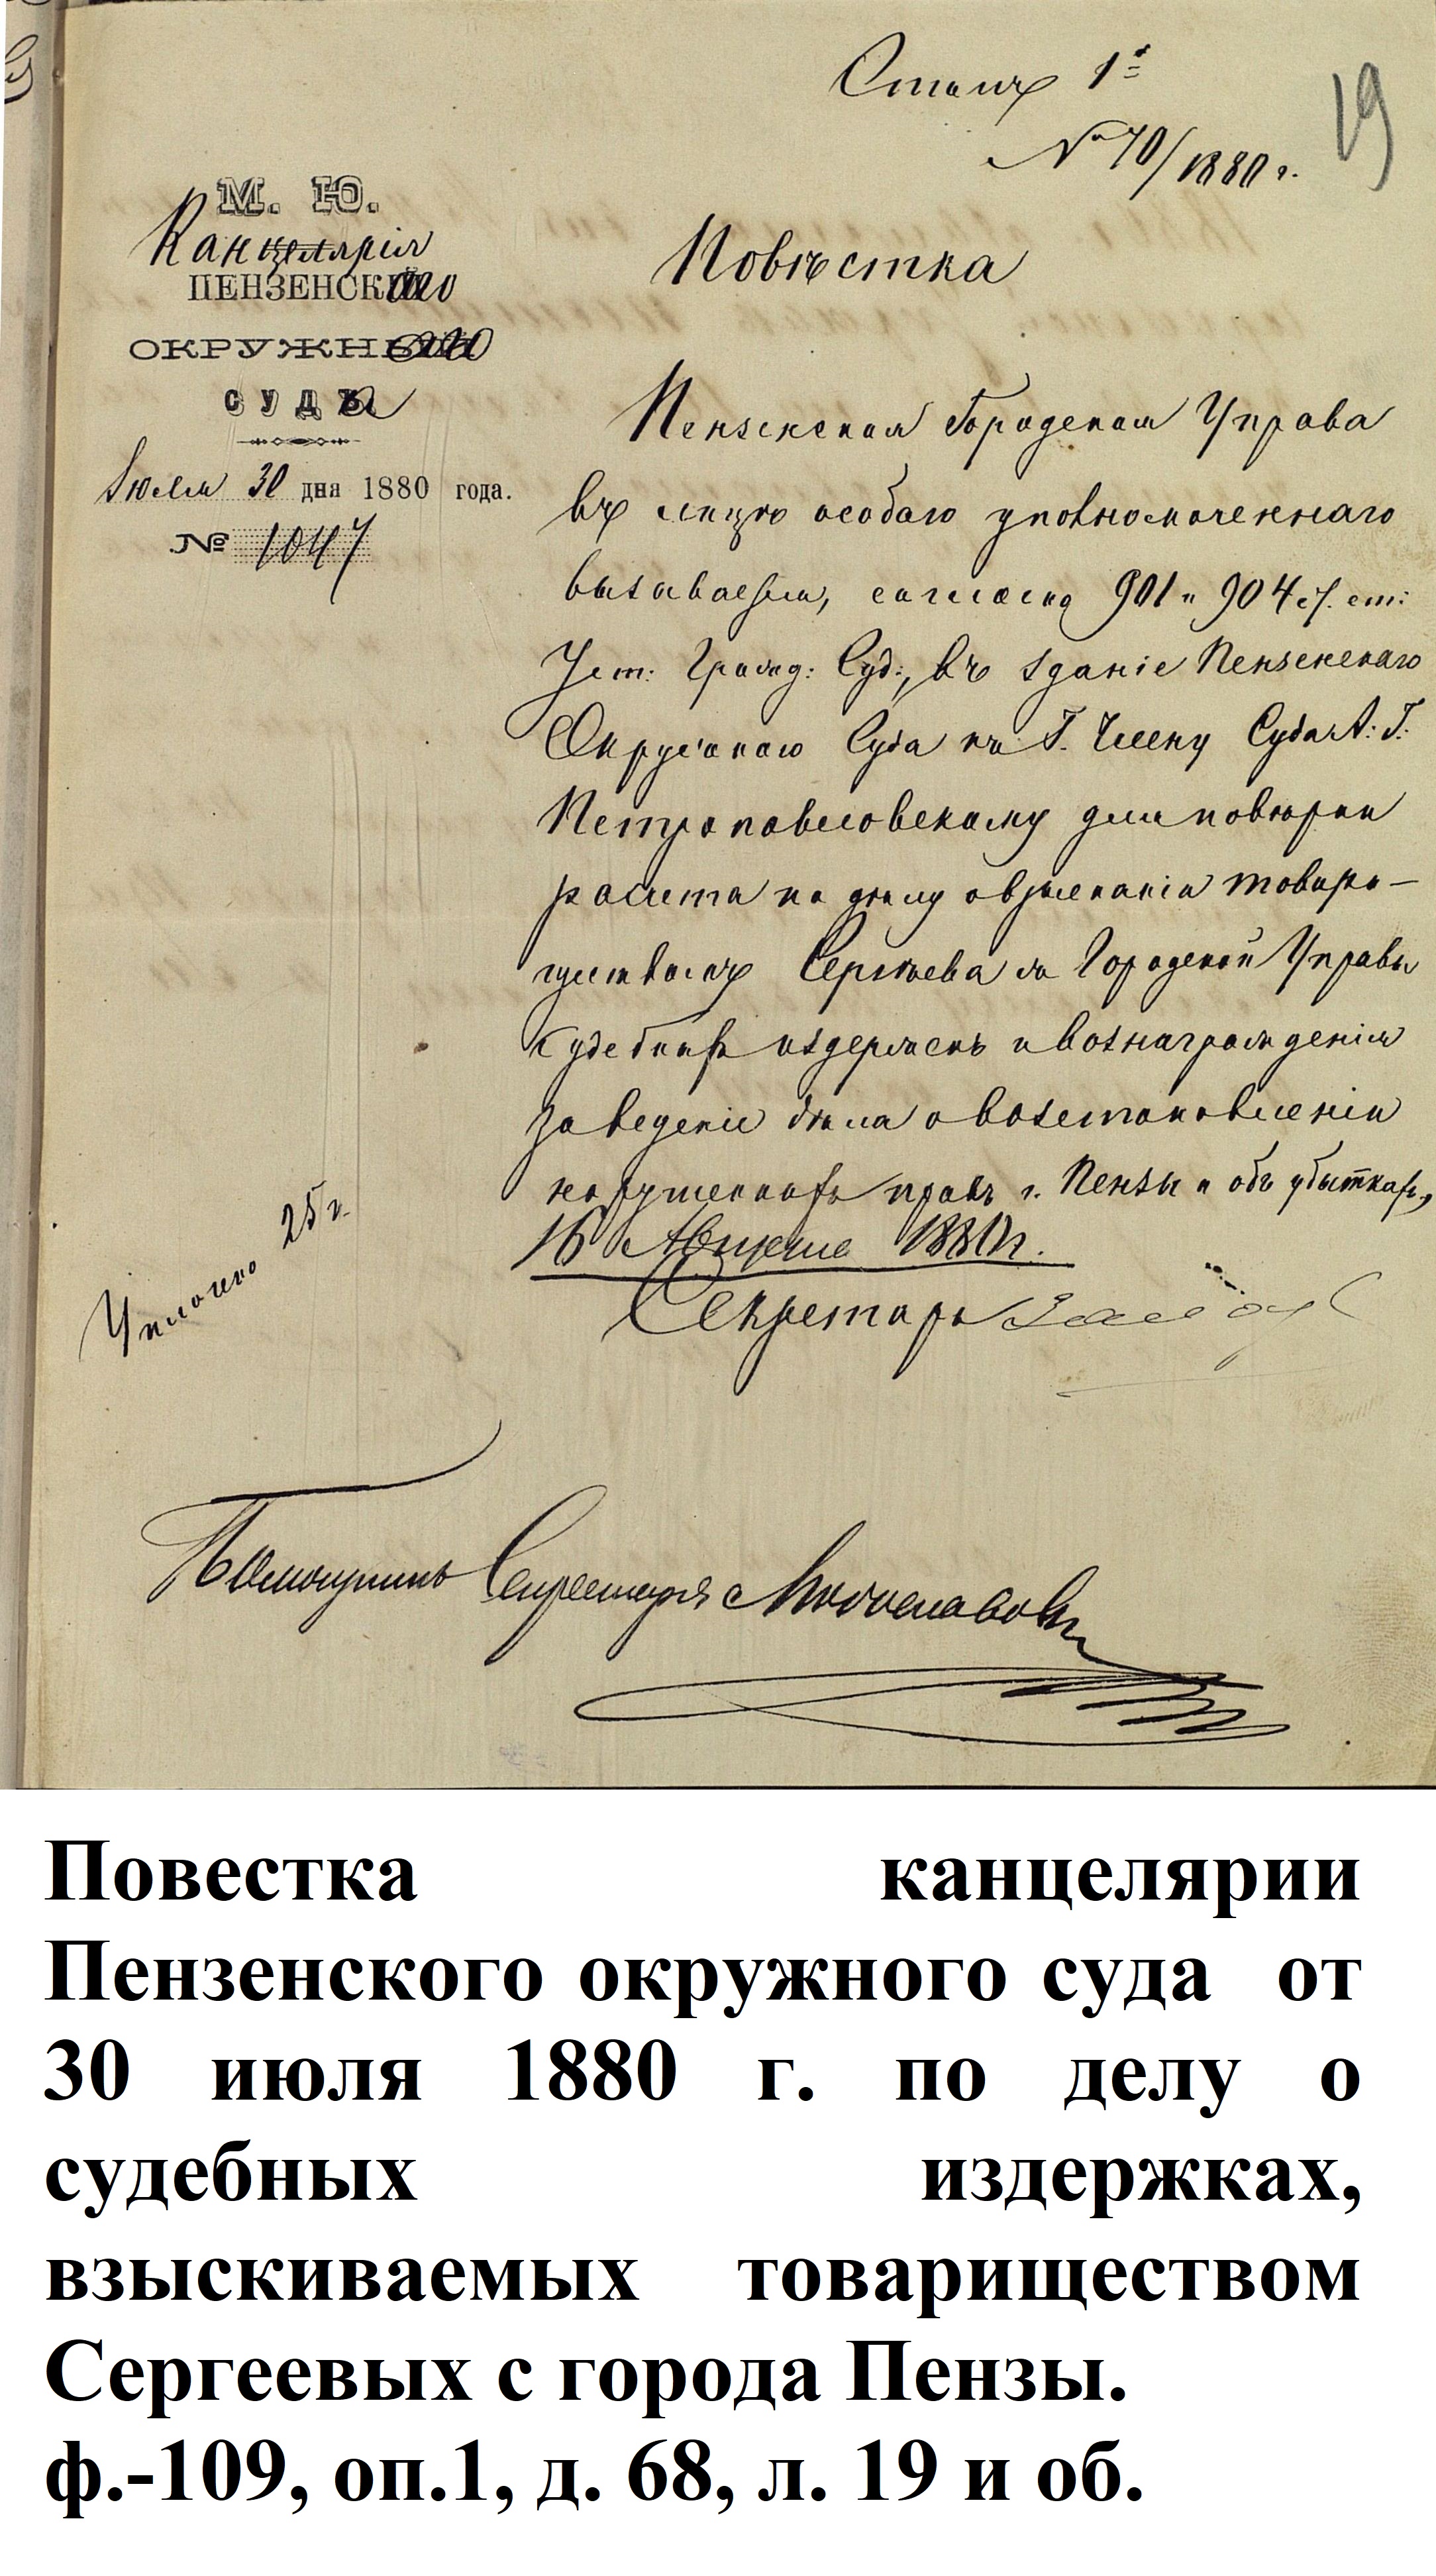 Столъ 1й
№ 70/1880 г.
19
М. Ю.
Канцелярія
ПЕНЗЕНСКаго
ОКРУЖНаго
СУДа
Іюля 30 дня 1880 года.
№ 1047
Повѣстка
Пензенская Городская Управа
въ лицѣ особаго уполномоченнаго
вызывается, согласно 901 и 904 ст:
Уст: Гражд: Суд:, въ зданіе Пензенскаго
Окружнаго Суда къ Г. Члену Суда А: Г:
Петропавловскому для повѣрки
расчета по дѣлу о взысканіи товари-
ществомъ Сергѣева съ Городской Управы
судебныхъ издержекъ и вознагражденія
за веденіе дѣла о возстановленіи
нарушенныхъ правъ г. Пензы и объ убыткахъ,
16 Августа 1880 г.
Секретарь
25 г.
Помощникъ Секретаря
Повестка канцелярии
Пензенского окружного суда от
30 июля 1880 г. по делу о
судебных издержках,
взыскиваемых товариществом
Сергеевых с города Пензы.
ф.-109, оп.1, д. 68, л. 19 и об.